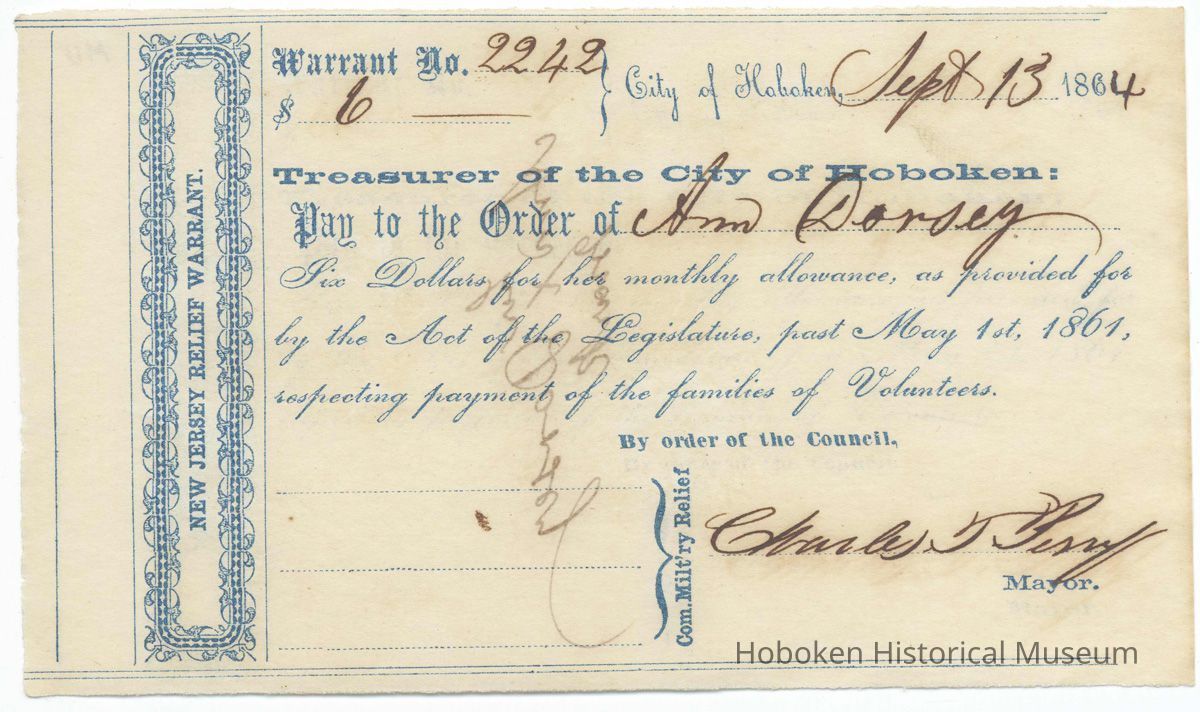 Warrant No. 2242
$ 6
City of Hoboken, Sept 13 1864
Treasurer of the City of Hoboken:
Pay to the Order of Ann Dorsey
Six Dollars for her monthly allowance, as provided for
by the Act of the Legislature, past May 1st, 1861,
respecting payment of the families of Volunteers.
By order of the Council,
Com. Milt'ry Relief
Charles T Perry
Mayor.
NEW JERSEY RELIEF WARRANT.
Hoboken Historical Museum